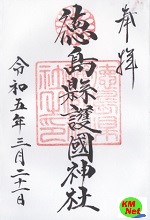 奉拝
徳島縣護國神社
令和五年三月二十一日
KM
Net